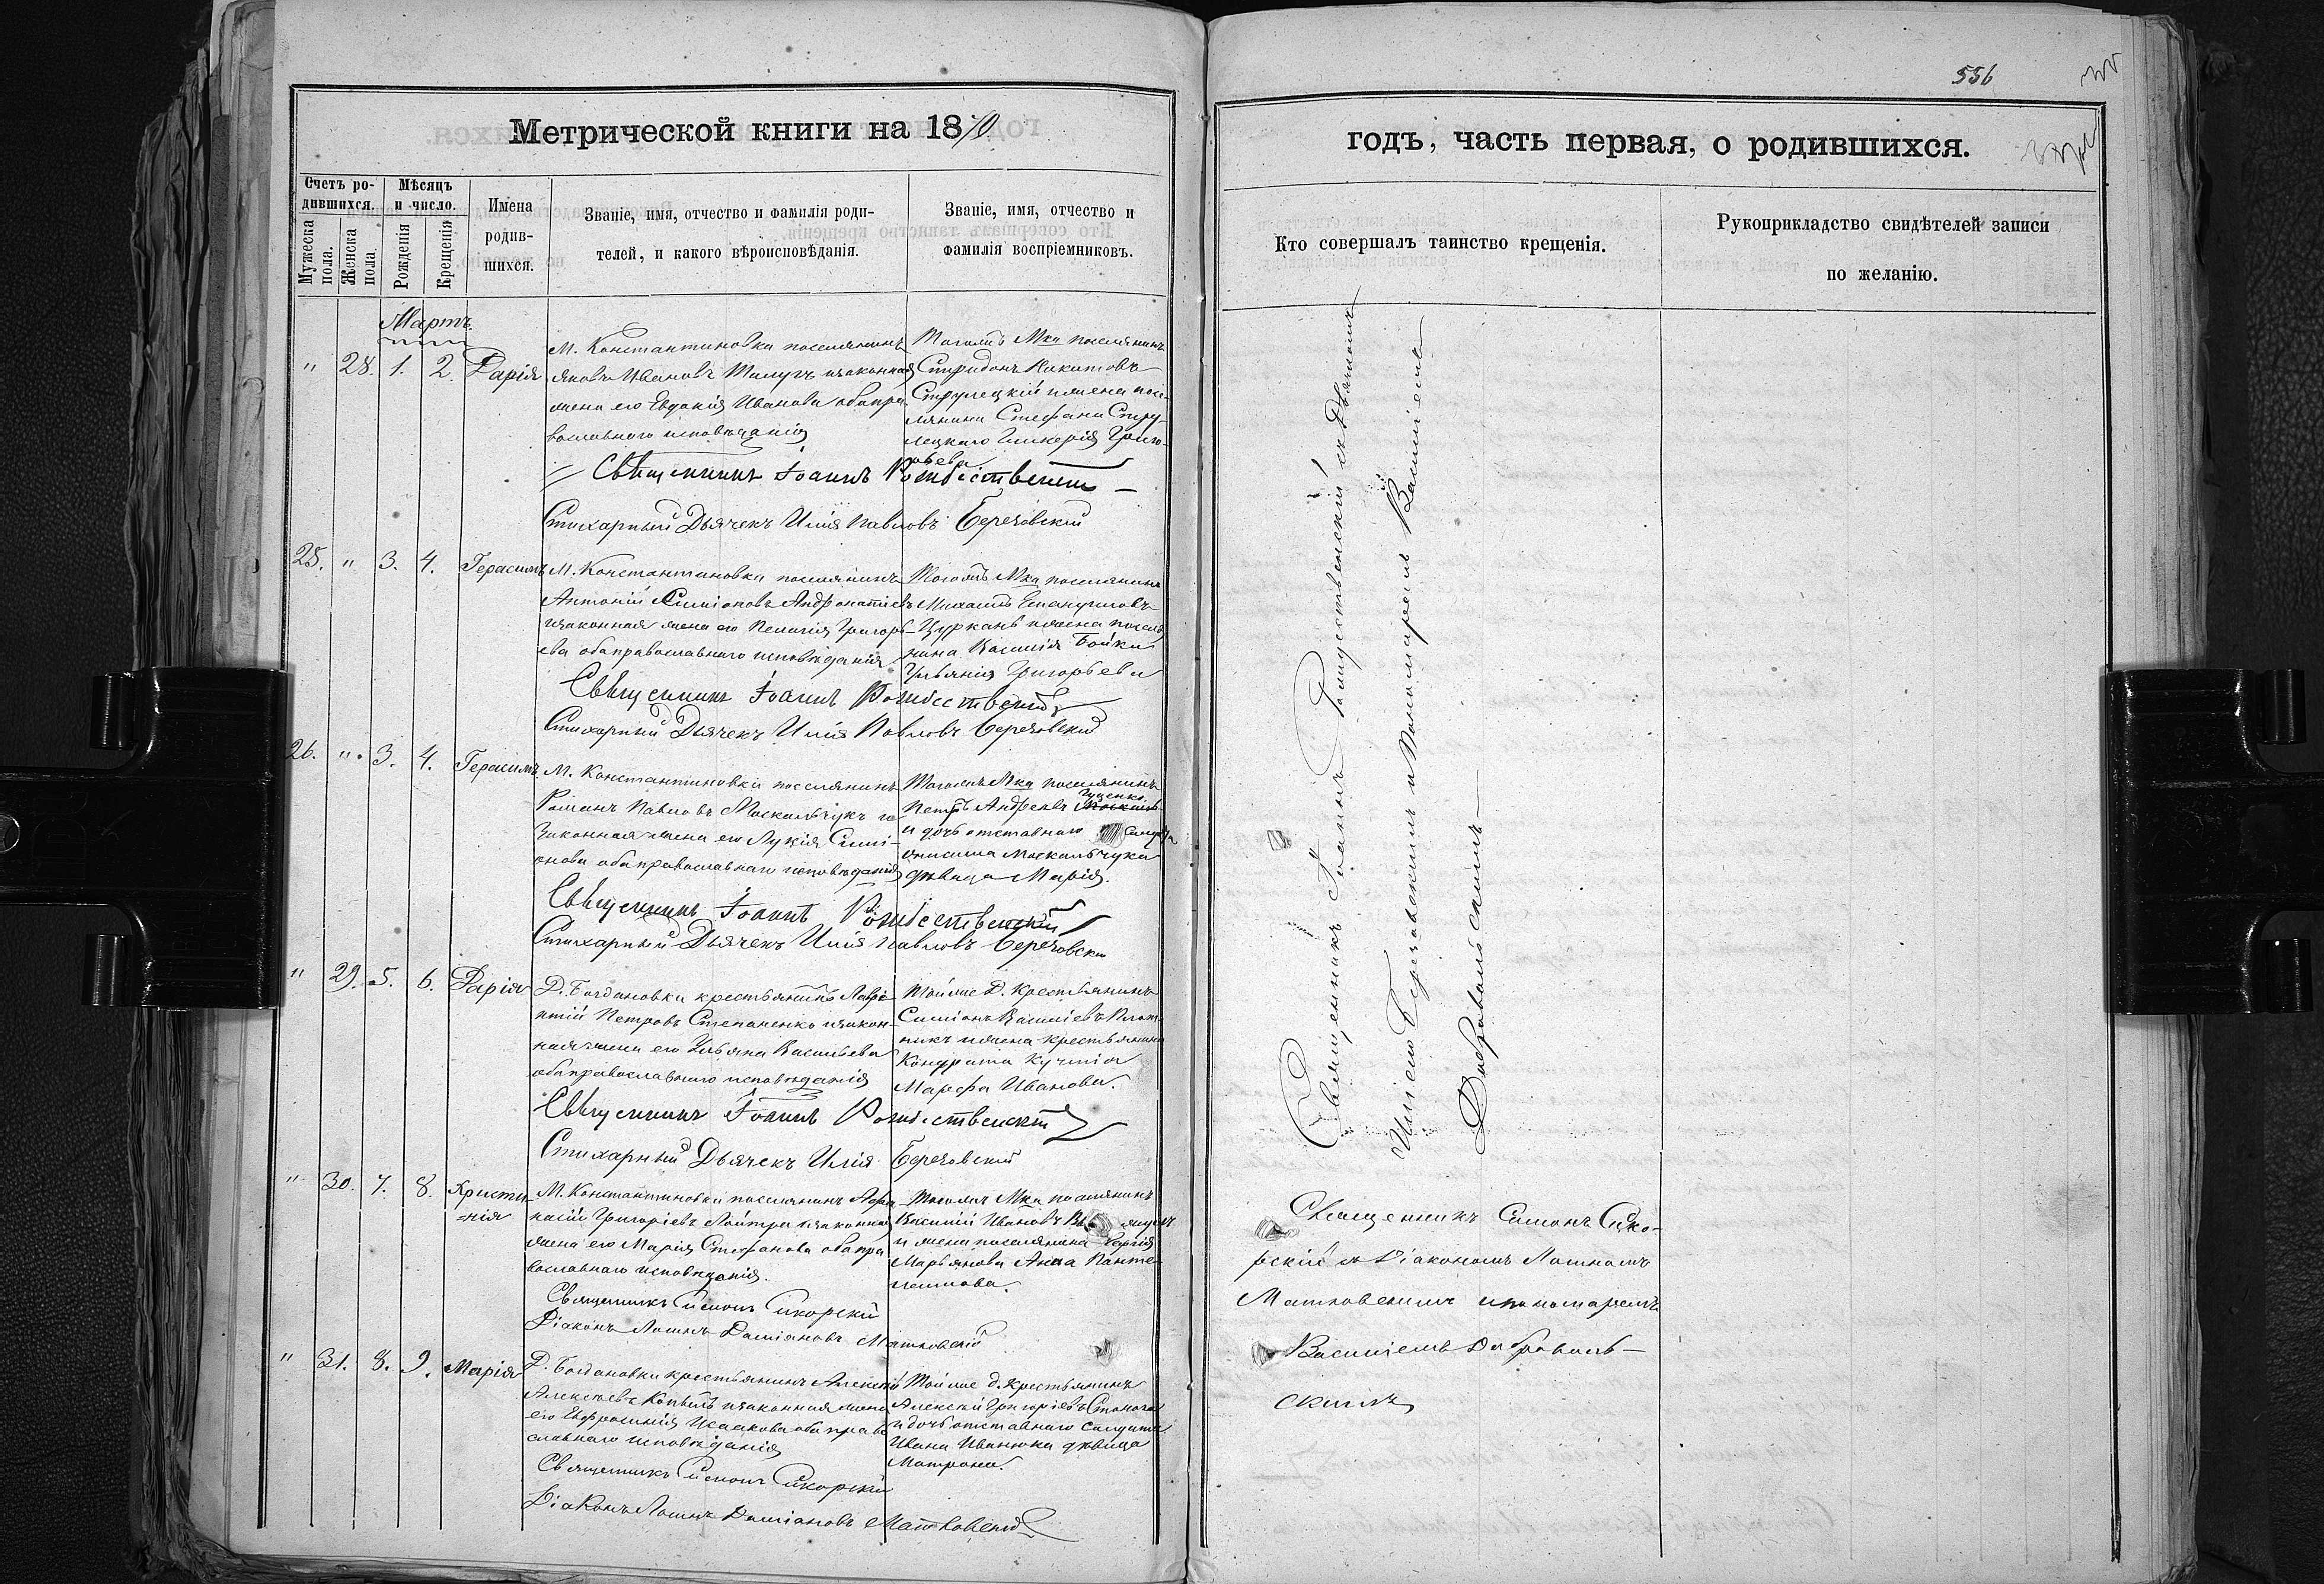 556
Метрической книги на 1870
годъ, часть первая, о родившихся.
Счетъ ро-
дившихся.
Мѣсяцъ
и число.
Мужеска
пола.
Женска
пола.
Рожденія
Крещенія
Имена
родив-
шихся.
Званіе, имя, отчество и фамилія роди-
телей, и какого вѣроисповѣданія.
Званіе, имя, отчество и
фамилія воспріемниковъ.
Кто совершалъ таинство крещенія.
Рукоприкладство свидѣтелей записи
по желанію.
Мартъ
" 28. 1. 2. Дарія
М. Константиновки поселянинъ
Яковъ Ивановъ и законная
жена его Евдокія Иванова оба пра-
вославнаго исповѣданія
Тогожъ Мка поселянинъ
Спиридонъ Никитовъ
Струлецкій и жена посе-
лянина Стефана Стру-
лецкаго Гликерія Григо-
рьева
Священникъ Іоаннъ Рождественскій
Стихарный Дьячекъ Илія Павловъ Березовскій
25. " 3. 4. Герасимъ
М. Константиновки поселянинъ
Антоній Симіоновъ
и законная жена его Пелагія Григорь-
ева оба православнаго исповѣданія
Тогожъ Мка поселянинъ
Михаилъ
Цурканъ и жена поселя
нина Василія Бойка
Ульянія Григорьева
Священникъ Іоаннъ Рождественскій
Стихарный Дьячекъ Илія Павловъ Березовскій
26. " 3. 4. Герасимъ
М. Константиновки поселянинъ
Романъ Павловъ Москальчукъ и
законная жена его Лукія Сими-
онова оба православнаго исповѣданія
Тогожъ Мка поселянинъ
Гуценко
Петръ Андреевъ
и дочь отставнаго
Онисима Москальчука
дѣвица Марія.
Священникъ Іоаннъ Рождественскій
Стихарный Дьячекъ Илія Павловъ Березовскій
" 29. 5. 6. Дарія
Д. Богдановки крестьянинъ Лаврен
тій Петровъ Степаненко и закон-
ная жена его Ульяна Васильева
оба православнаго исповѣданія
Тойже Д. крестьянинъ
Симіонъ Василіевъ Плот-
никъ и жена крестьянина
Кондрата
Марфа Иванова.
Священникъ Іоаннъ Рождественскій
Стихарный Дьячекъ Илія Березовскій
" 30. 7. 8. Христи-
нія
М. Константиновки поселянинъ Афа
насій Григоріевъ и законная
жена его Марія Стефанова оба пра
вославнаго исповѣданія.
Тогожъ Мка поселянинъ
Василій Ивановъ
и жена поселянина
Марьянова Анна Панте-
леимова.
Священникъ Симонъ Сикорскій
Діаконъ Логинъ Даміановъ Матковскій
" 31. 8. 9. Марія
Д. Богдановки крестьянинъ Алексѣй
Алексѣевъ и законная жена
его Евфросинія Исаакова оба право
славнаго исповѣданія
Тойже д. крестьянинъ
Алексѣй Григоріевъ
и дочь отставнаго солдата
Ивана Иванюка дѣвица
Матрона.
Священникъ Симонъ Сикорскій
Діаконъ Логинъ Даміановъ Матковскій
Священникъ Іоаннъ Рождественскій съ Дьячкомъ
Иліею Березовскимъ и Пономаремъ Василіемъ
Добровольскимъ
Священникъ Симонъ Сико-
рскій съ Діакономъ Логиномъ
Матковскимъ и пономаремъ
Василіемъ Доброволь-
скимъ